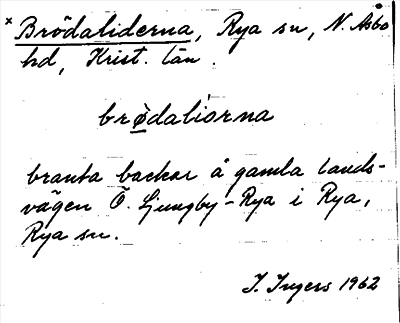 × Brödaliderna, Rya sn, N. Åsbo
hd, Krist. län.
brödaliorna
branta backar å gamla lands-
vägen Ö. Ljungby-Rya i Rya,
Rya sn.
I. Ingers 1962